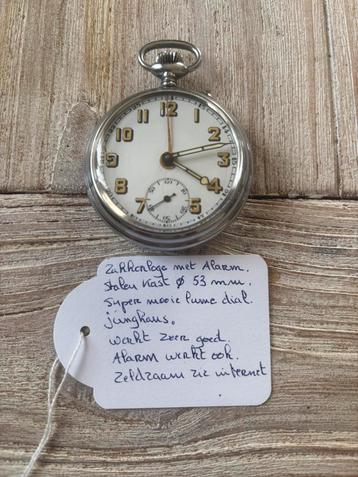 12
11
10
9
8
7
5
4
3
2
1
Zakhorloge met Alarm.
Stalen Kast Ø 53 mm.
Super mooie lume dial.
junghans.
werkt zeer goed.
Alarm werkt ook.
Zeldzaam zie internet